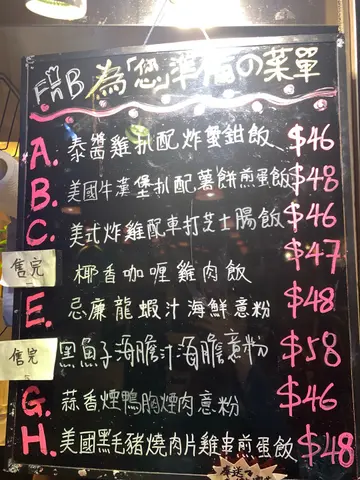 FnB 為「您」準備の菜單
A. 泰醬雞扒配炸蟹鉗飯 $46
B. 美國牛漢堡扒配薯餅煎蛋飯 $48
C. 美式炸雞配車打芝士腸飯 $46
售完 椰香咖喱雞肉飯 $47
E. 忌廉龍蝦汁海鮮意粉 $48
售完 黑魚子海膽汁海膽意粉 $58
G. 蒜香煙鴨胸煙肉意粉 $46
H. 美國黑毛豬燒肉片雞串煎蛋飯 $48